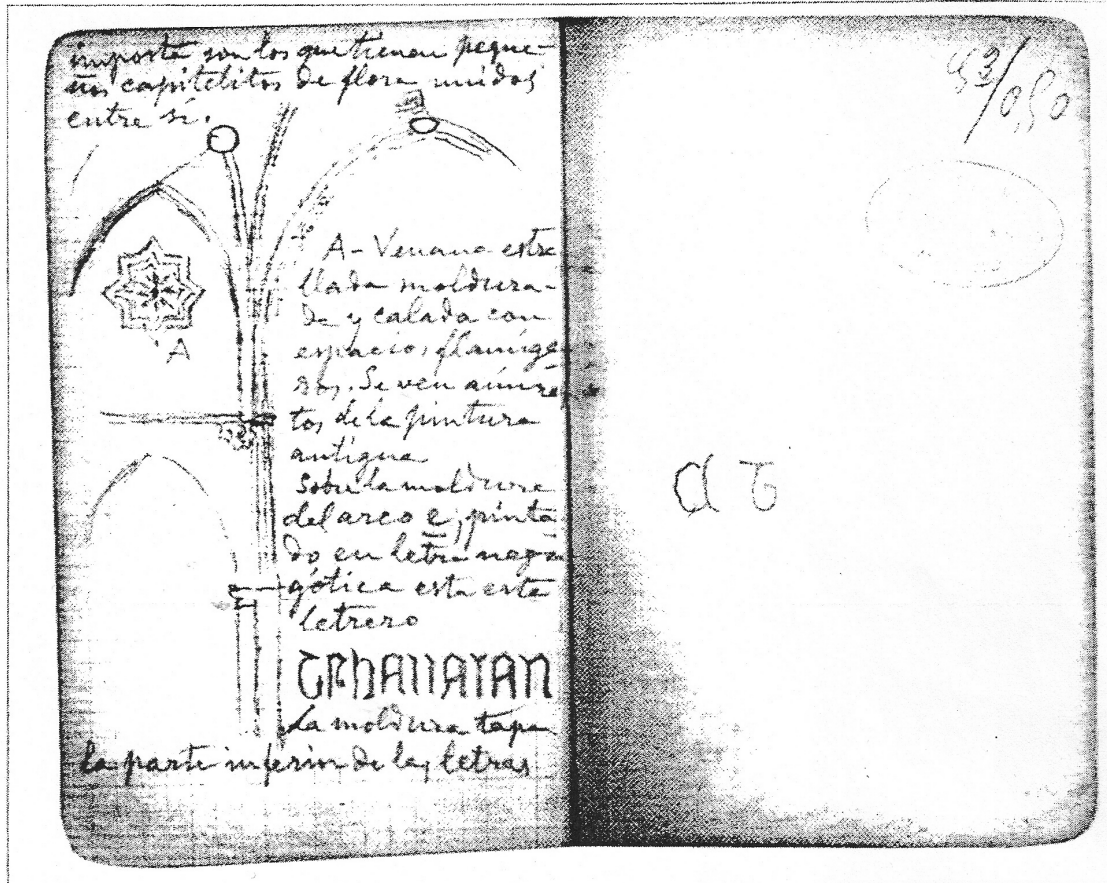 importe son los que tienen peque-
ños capitelitos de flora unidos
entre sí.
A - Venana estre
llada moldura-
da y calada con
espacios flamíge
ros. Se ven aún res
tos de la pintura
antigua
A
Sobre la moldura
del arco e, pinta
do en letra negra
gótica esta este
letrero
La moldura tapa
la parte inferior de las letras